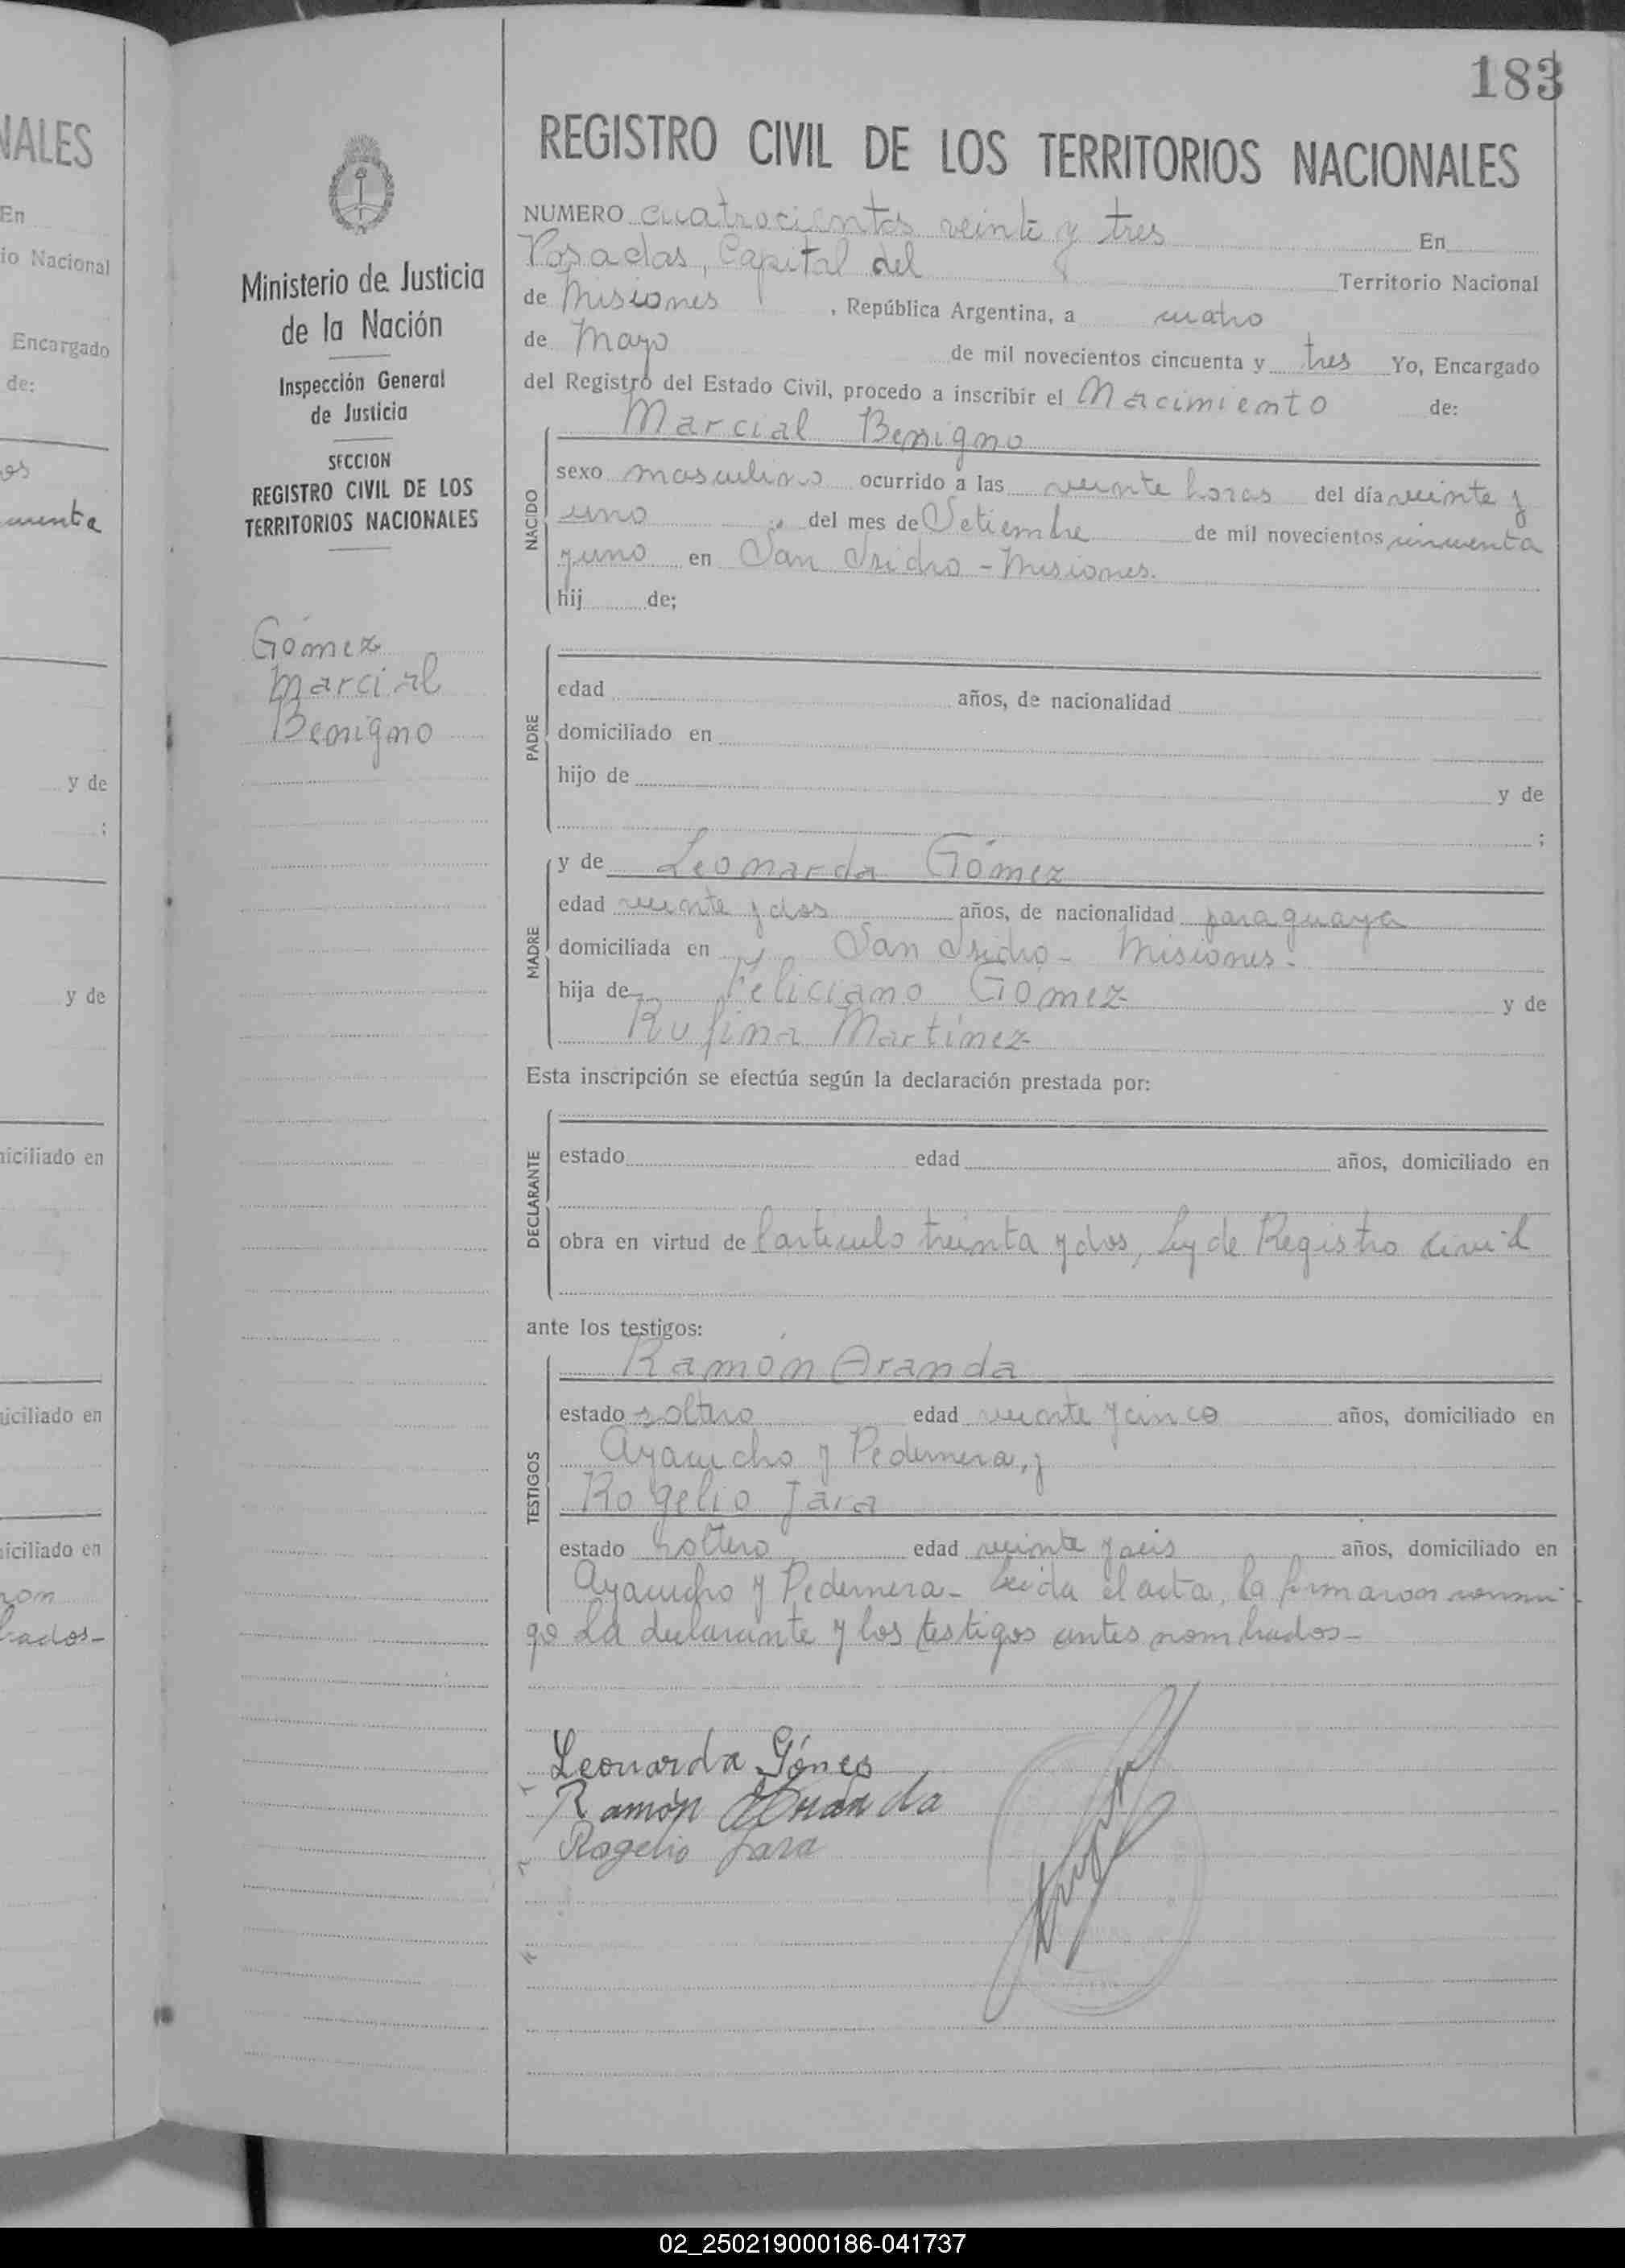 183
NALES
En
io Nacional
Encargado
de:
os
cuenta
y de
;
y de
niciliado en
niciliado en
niciliado en
ron
brados-
Ministerio de Justicia
de la Nación
Inspección General
de Justicia
SECCION
REGISTRO CIVIL DE LOS
TERRITORIOS NACIONALES
Gómez
Marcial
Benigno
REGISTRO CIVIL DE LOS TERRITORIOS NACIONALES
NUMERO cuatrocientos veinte y tres En
Posadas, Capital del Territorio Nacional
de Misiones , República Argentina, a cuatro
de Mayo de mil novecientos cincuenta y tres Yo, Encargado
del Registro del Estado Civil, procedo a inscribir el Nacimiento de:
Marcial Benigno
NACIDO
sexo masculino ocurrido a las veinte horas del día veinte y
uno del mes de Setiembre de mil novecientos cincuenta
y uno en San Isidro - Misiones.
hij de;
PADRE
edad años, de nacionalidad
domiciliado en
hijo de y de
;
MADRE
y de Leonarda Gómez
edad veinte y dos años, de nacionalidad paraguaya
domiciliada en San Isidro - Misiones.
hija de Feliciano Gomez y de
Rufina Martínez
Esta inscripción se efectúa según la declaración prestada por:
DECLARANTE
estado edad años, domiciliado en
obra en virtud de l artículo treinta y dos, Ley de Registro Civil
ante los testigos:
TESTIGOS
Ramón Aranda
estado soltero edad veinte y cinco años, domiciliado en
Ayacucho y Pedernera, y
Rogelio Jara
estado soltero edad veinte y seis años, domiciliado en
Ayacucho y Pedernera - Leída el acta, la firmaron conmi
go la declarante y los testigos antes nombrados -
Leonarda Gónes
Ramón Aranda
Rogelio Jara
02_250219000186-041737